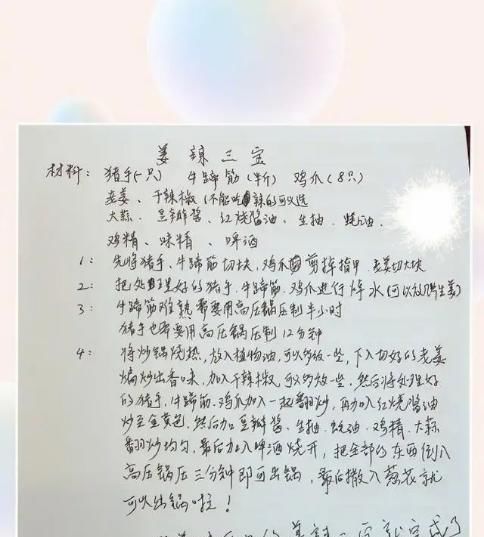 姜辣三宝
材料：猪手(一只) 牛蹄筋(半斤) 鸡爪(8只)
老姜、干辣椒(不能吃辣的可以选
大蒜、豆瓣酱、红烧酱油、生抽、蚝油
鸡精、味精、啤酒
1：先将猪手、牛蹄筋切块，鸡爪剪掉指甲 老姜切大块
2：把处理好的猪手、牛蹄筋、鸡爪进行焯水(可以放几片生姜)
3：牛蹄筋难熟需要用高压锅压制半小时
猪手也需要用高压锅压制12分钟
4：将炒锅烧热，放入植物油，可以多放一些，下入切好的老姜
煸炒出香味，加入干辣椒，可以多放一些，然后将处理好
的猪手，牛蹄筋、鸡爪加入一起翻炒，再加入红烧酱油
炒至金黄色，然后加豆瓣酱、生抽、蚝油、鸡精、大蒜
翻炒均匀，最后加入啤酒烧开，把全部的东西倒入
高压锅压三分钟即可出锅，最后撒入葱花就
可以出锅啦！